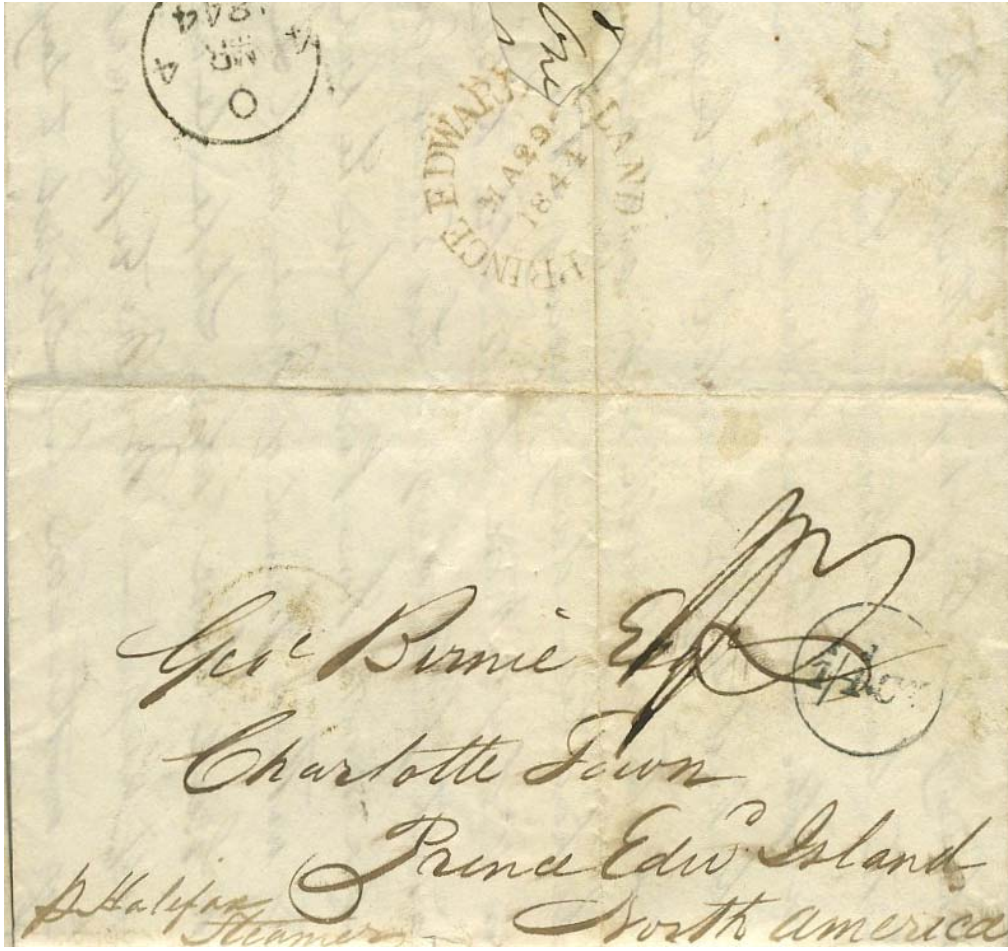 O
4 MR 4
1844
PRINCE EDWARD ISLAND
MA 29
1844
Geoe Birnie Esqr
Charlotte Town
Prince Edwd Island
North America
p Halifax
Steamer
1/1½ Cy